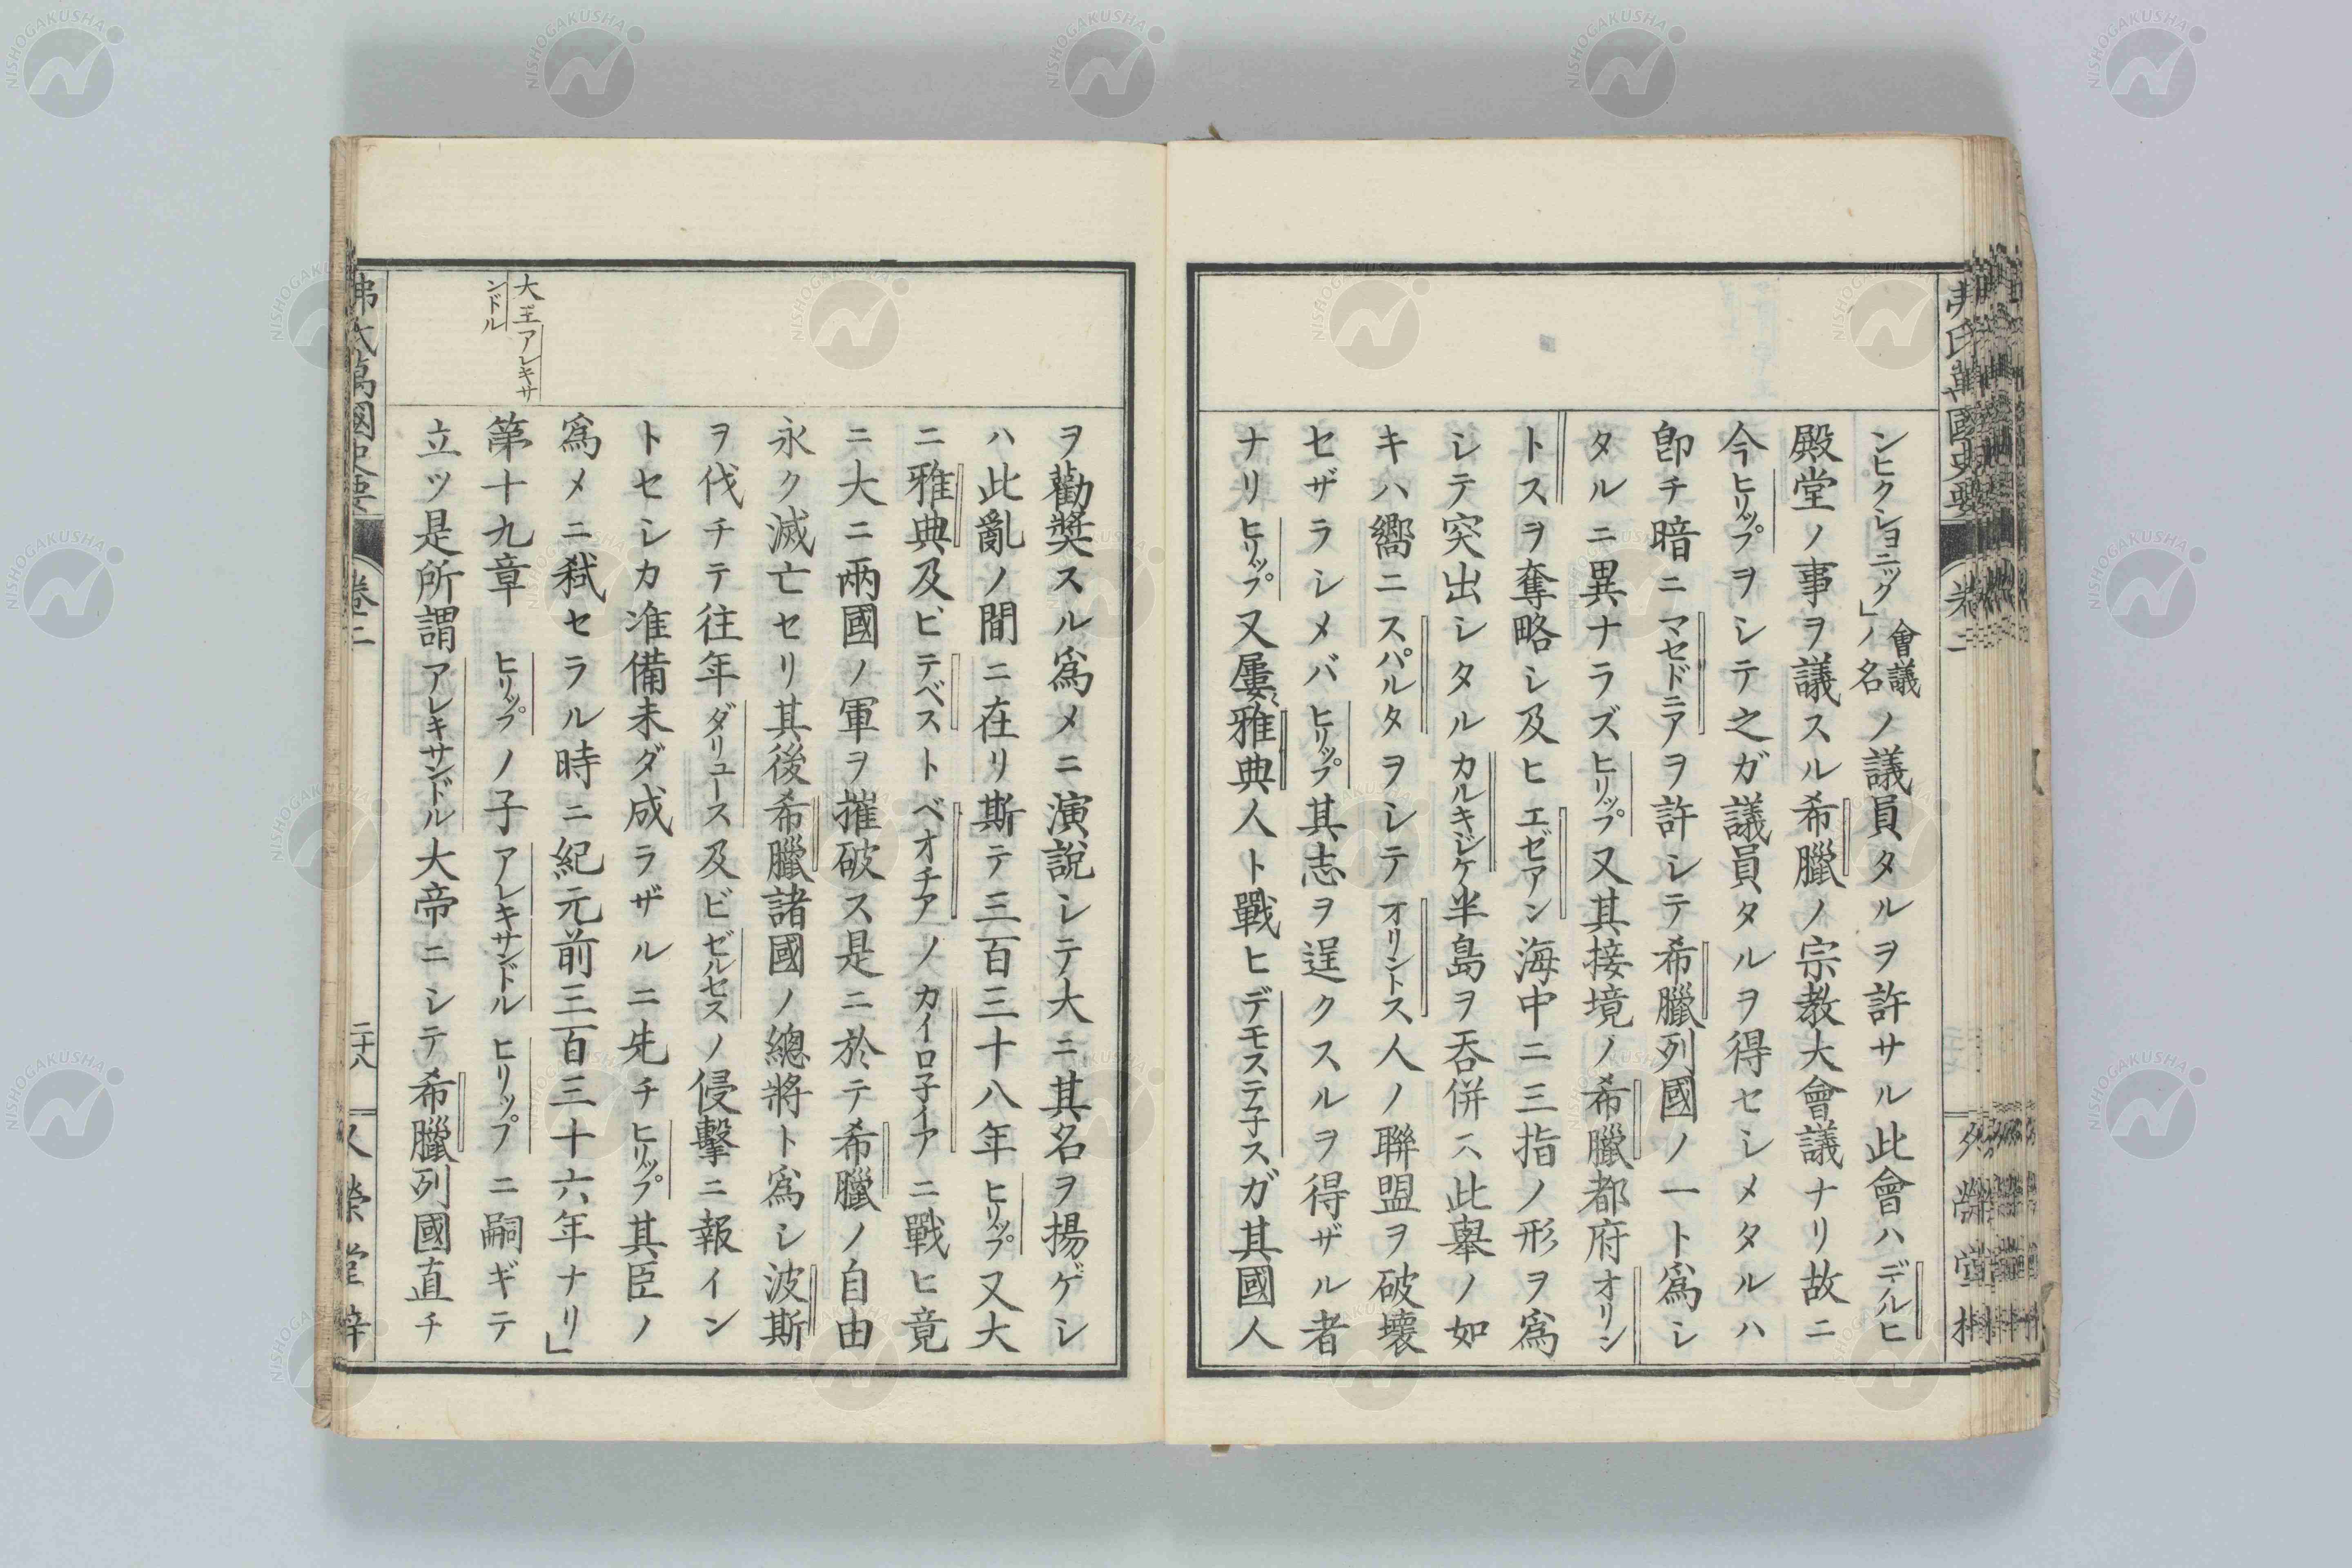 ンヒクショニック」ノ會議名ノ議員タルヲ許サル此會ハデルヒ
殿堂ノ事ヲ議スル希臘ノ宗教大會議ナリ故ニ
今ヒリップヲシテ之ガ議員タルヲ得セシメタルハ
卽チ暗ニマセドニアヲ許シテ希臘列國ノ一ト爲シ
タルニ異ナラズヒリップ又其接境ノ希臘都府オリン
トスヲ奪略シ及ヒエゼアン海中ニ三指ノ形ヲ爲
シテ突出シタルカルキジケ半島ヲ呑併ス此擧ノ如
キハ嚮ニスパルタヲシテオリントス人ノ聯盟ヲ破壞
セザラシメバヒリップ其志ヲ逞クスルヲ得ザル者
ナリヒリップ又屢〻雅典人ト戰ヒデモステ子スガ其國人
ヲ勸奬スル爲メニ演說シテ大ニ其名ヲ揚ゲシ
ハ此亂ノ間ニ在リ斯テ三百三十八年ヒリップ又大
ニ雅典及ビテベストベオチアノカイロ子イアニ戰ヒ竟
ニ大ニ兩國ノ軍ヲ摧破ス是ニ於テ希臘ノ自由
永ク滅亡セリ其後希臘諸國ノ總將ト爲シ波斯
ヲ伐チテ往年ダリュース及ビゼルセスノ侵擊ニ報イン
トセシカ准備未ダ成ラザルニ先チヒリップ其臣ノ
爲メニ弑セラル時ニ紀元前三百三十六年ナリ」
大王アレキサ
ンドル
第十九章 ヒリップノ子アレキサンドルヒリップニ嗣ギテ
立ツ是所謂アレキサンドル大帝ニシテ希臘列國直チ
弗氏萬國史要 卷二 二十八 又榮堂梓
NISHOGAKUSHA